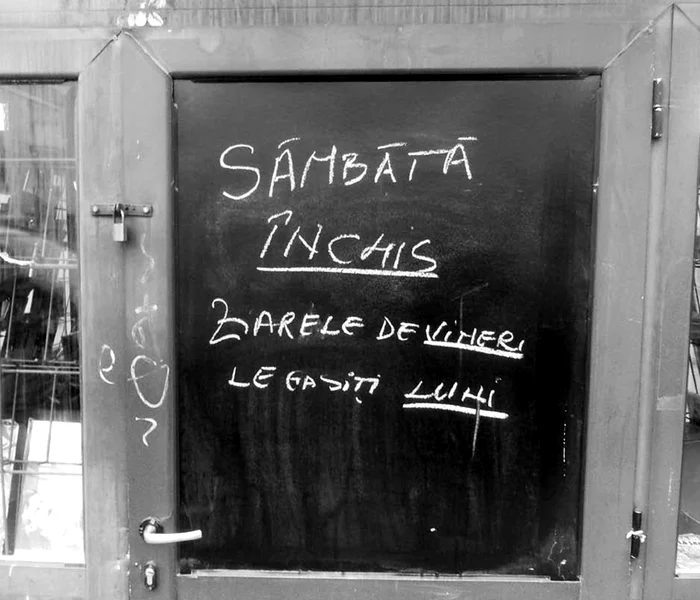 SÂMBĂTĂ
ÎNCHIS
ZIARELE DE VINERI
LE GASIȚI LUNI